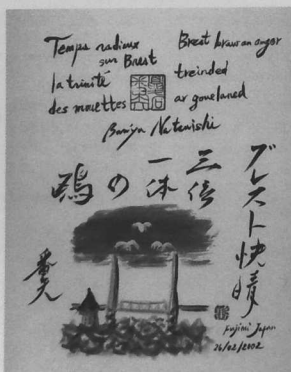 Temps radieux
sur Brest
la trinité
des mouettes
Brest braw an amzer
treinded
ar gouelaned
Banya Natsuishi
ブレスト快晴
三位
一体
の
鴎
番矢
Fujimi Japan
26/02/2002